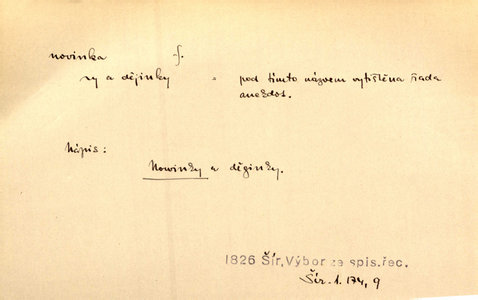 novinka f.
ny a dějinky = pod tímto názvem vytištěna řada
anekdot.
Nápis:
Nowinky a děginky.
1826 Šír, Výbor ze spis. řec.
Šír. 1. 174, 9